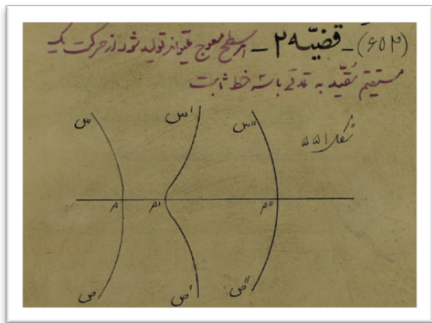 (۶۵۲) - قضیّه ۲ - هر سطح معوج میتواند تولید شود از حرکت یک
مستقیم مقید به تلاقی با سه خط ثابت
شکل ۵۵۱
س س' س"
م م' م"
ص ص' ص"